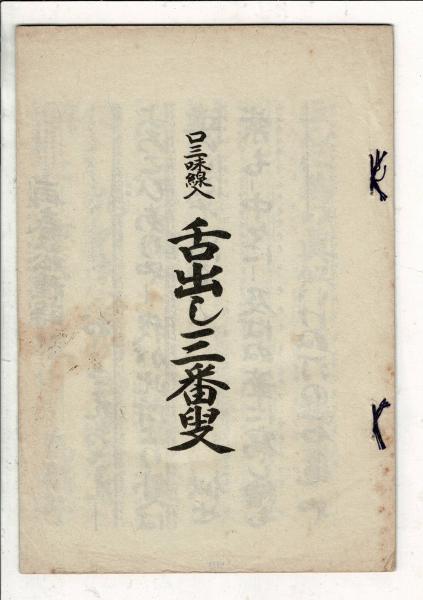 口三味線入
舌出し三番叟